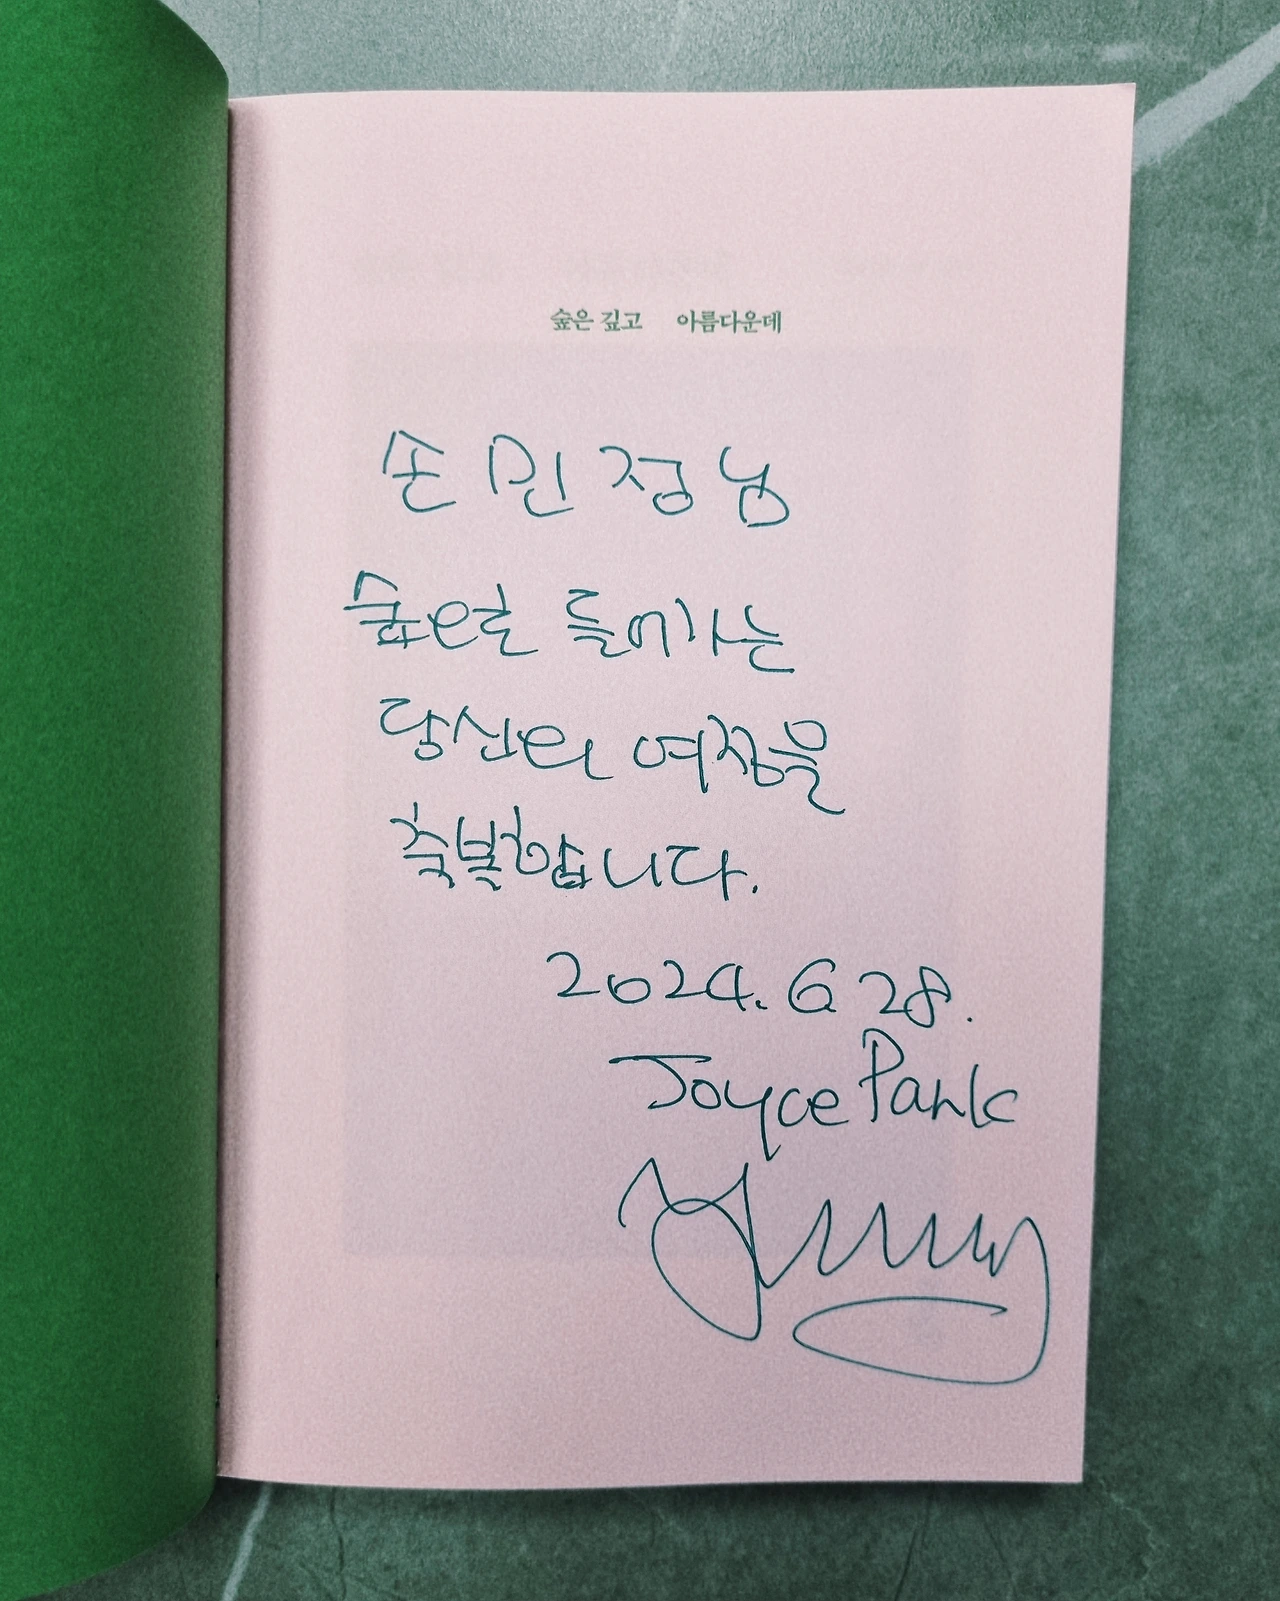 숲은 깊고 아름다운데
손민정님
숲으로 들어가는
당신의 여정을
축복합니다.
2024. 6 28.
Joyce Park